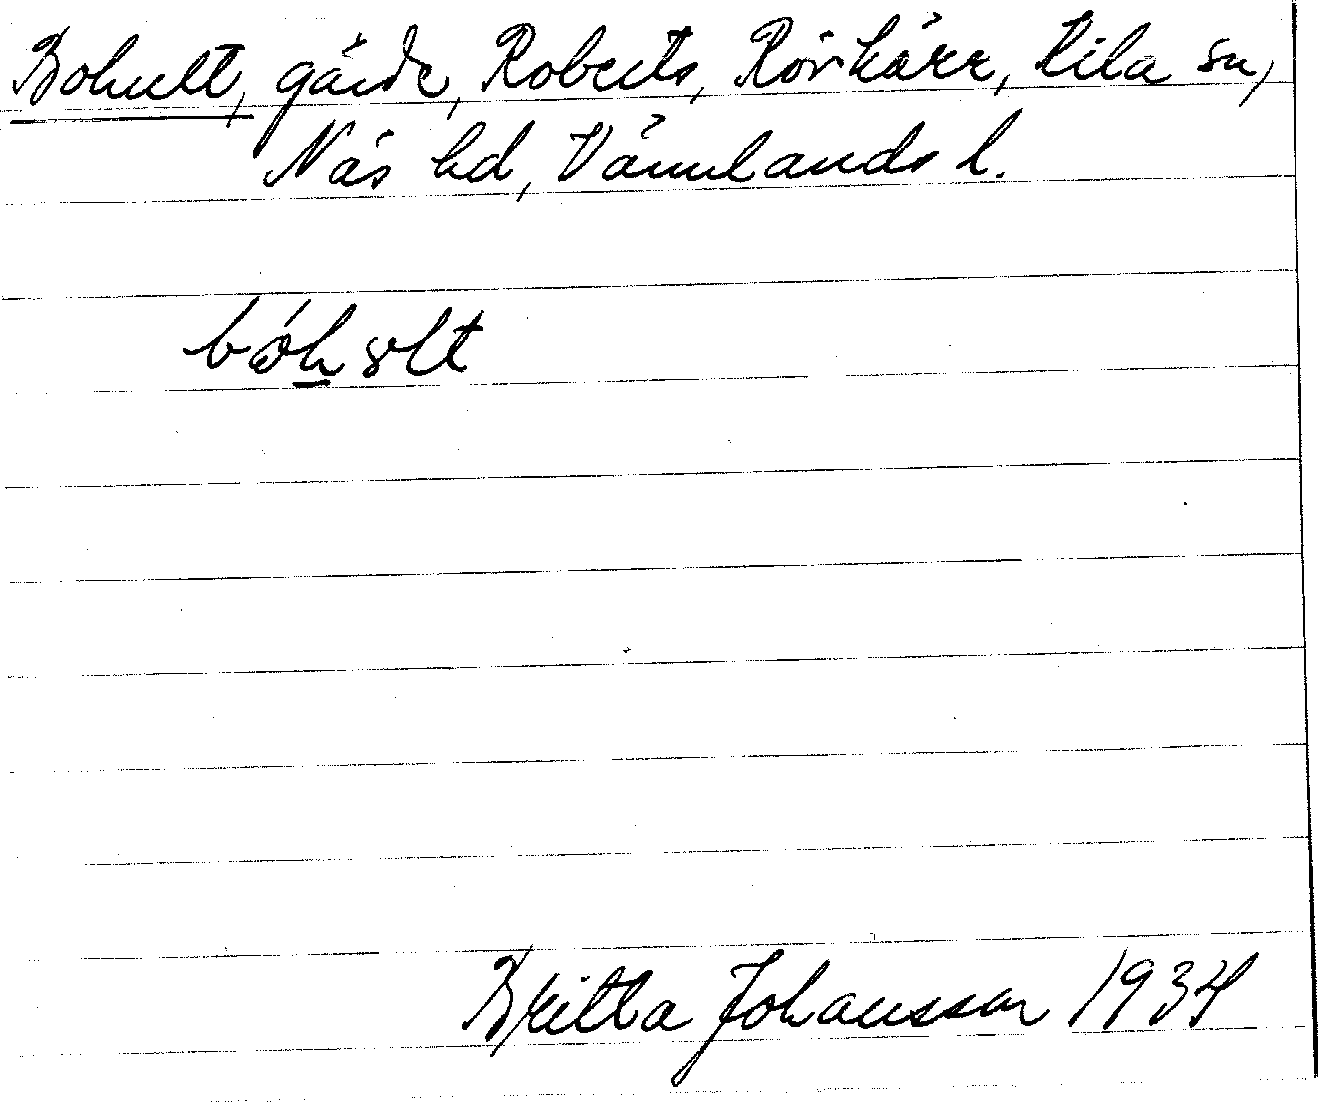 Bohult, gärde, Roberts, Rörkärr, Kila sn,
Näs hd, Värmlands l.
Britta Johansson 1934